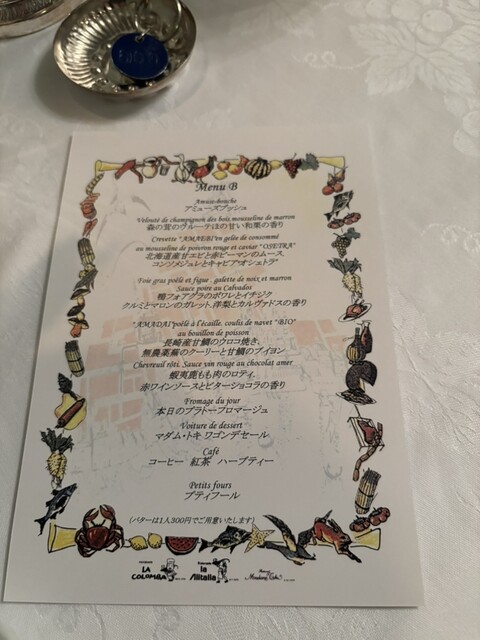 Menu B
Amuse-bouche
アミューズブッシュ
Velouté de champignon des bois, mousseline de marron
森の茸のヴルーテほの甘い和栗の香り
Crevette "AMAEBI" en gelée de consommé
au mousseline de poivron rouge et caviar "OSETRA"
北海道産甘エビと赤ピーマンのムース
コンソメジュレとキャビア"オシェトラ"
Foie gras poêlé et figue , galette de noix et marron
Sauce poire au Calvados
鴨フォアグラのポワレとイチジク
クルミとマロンのガレット、洋梨とカルヴァドスの香り
"AMADAI" poêlé à l'écaille, coulis de navet "BIO"
au bouillon de poisson
長崎産甘鯛のウロコ焼き、
無農薬蕪のクーリーと甘鯛のブイヨン
Chevreuil rôti, Sauce vin rouge au chocolat amer
蝦夷鹿もも肉のロティ、
赤ワインソースとビターショコラの香り
Fromage du jour
本日のプラトーフロマージュ
Voiture de dessert
マダム・トキ ワゴンデセール
Café
コーヒー 紅茶 ハーブティー
Petits fours
プティフール
(バターは1人300円でご用意いたします)
LA COLOMBA
la Alitalia
Madame Toki